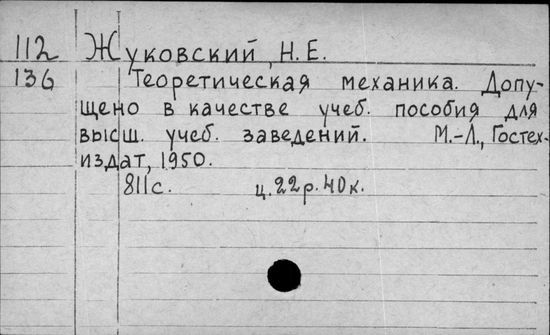 112 Жуковский, Н.Е.
136 Теоретическая механика. Допу-
щено в качестве учеб. пособия для
высш. учеб. заведений. М.-Л., Гостех-
издат, 1950.
811с. ц.22р.40к.